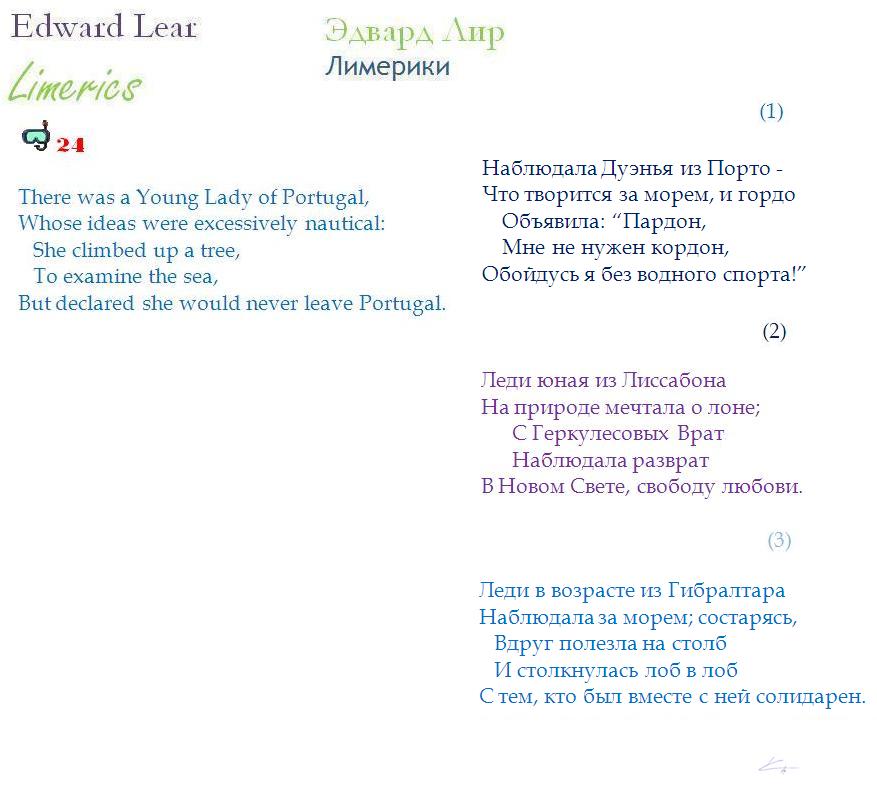 Edward Lear
Limerics
24
There was a Young Lady of Portugal,
Whose ideas were excessively nautical:
She climbed up a tree,
To examine the sea,
But declared she would never leave Portugal.
Эдвард Лир
Лимерики
(1)
Наблюдала Дуэнья из Порто -
Что творится за морем, и гордо
Объявила: “Пардон,
Мне не нужен кордон,
Обойдусь я без водного спорта!”
(2)
Леди юная из Лиссабона
На природе мечтала о лоне;
С Геркулесовых Врат
Наблюдала разврат
В Новом Свете, свободу любови.
(3)
Леди в возрасте из Гибралтара
Наблюдала за морем; состарясь,
Вдруг полезла на столб
И столкнулась лоб в лоб
С тем, кто был вместе с ней солидарен.